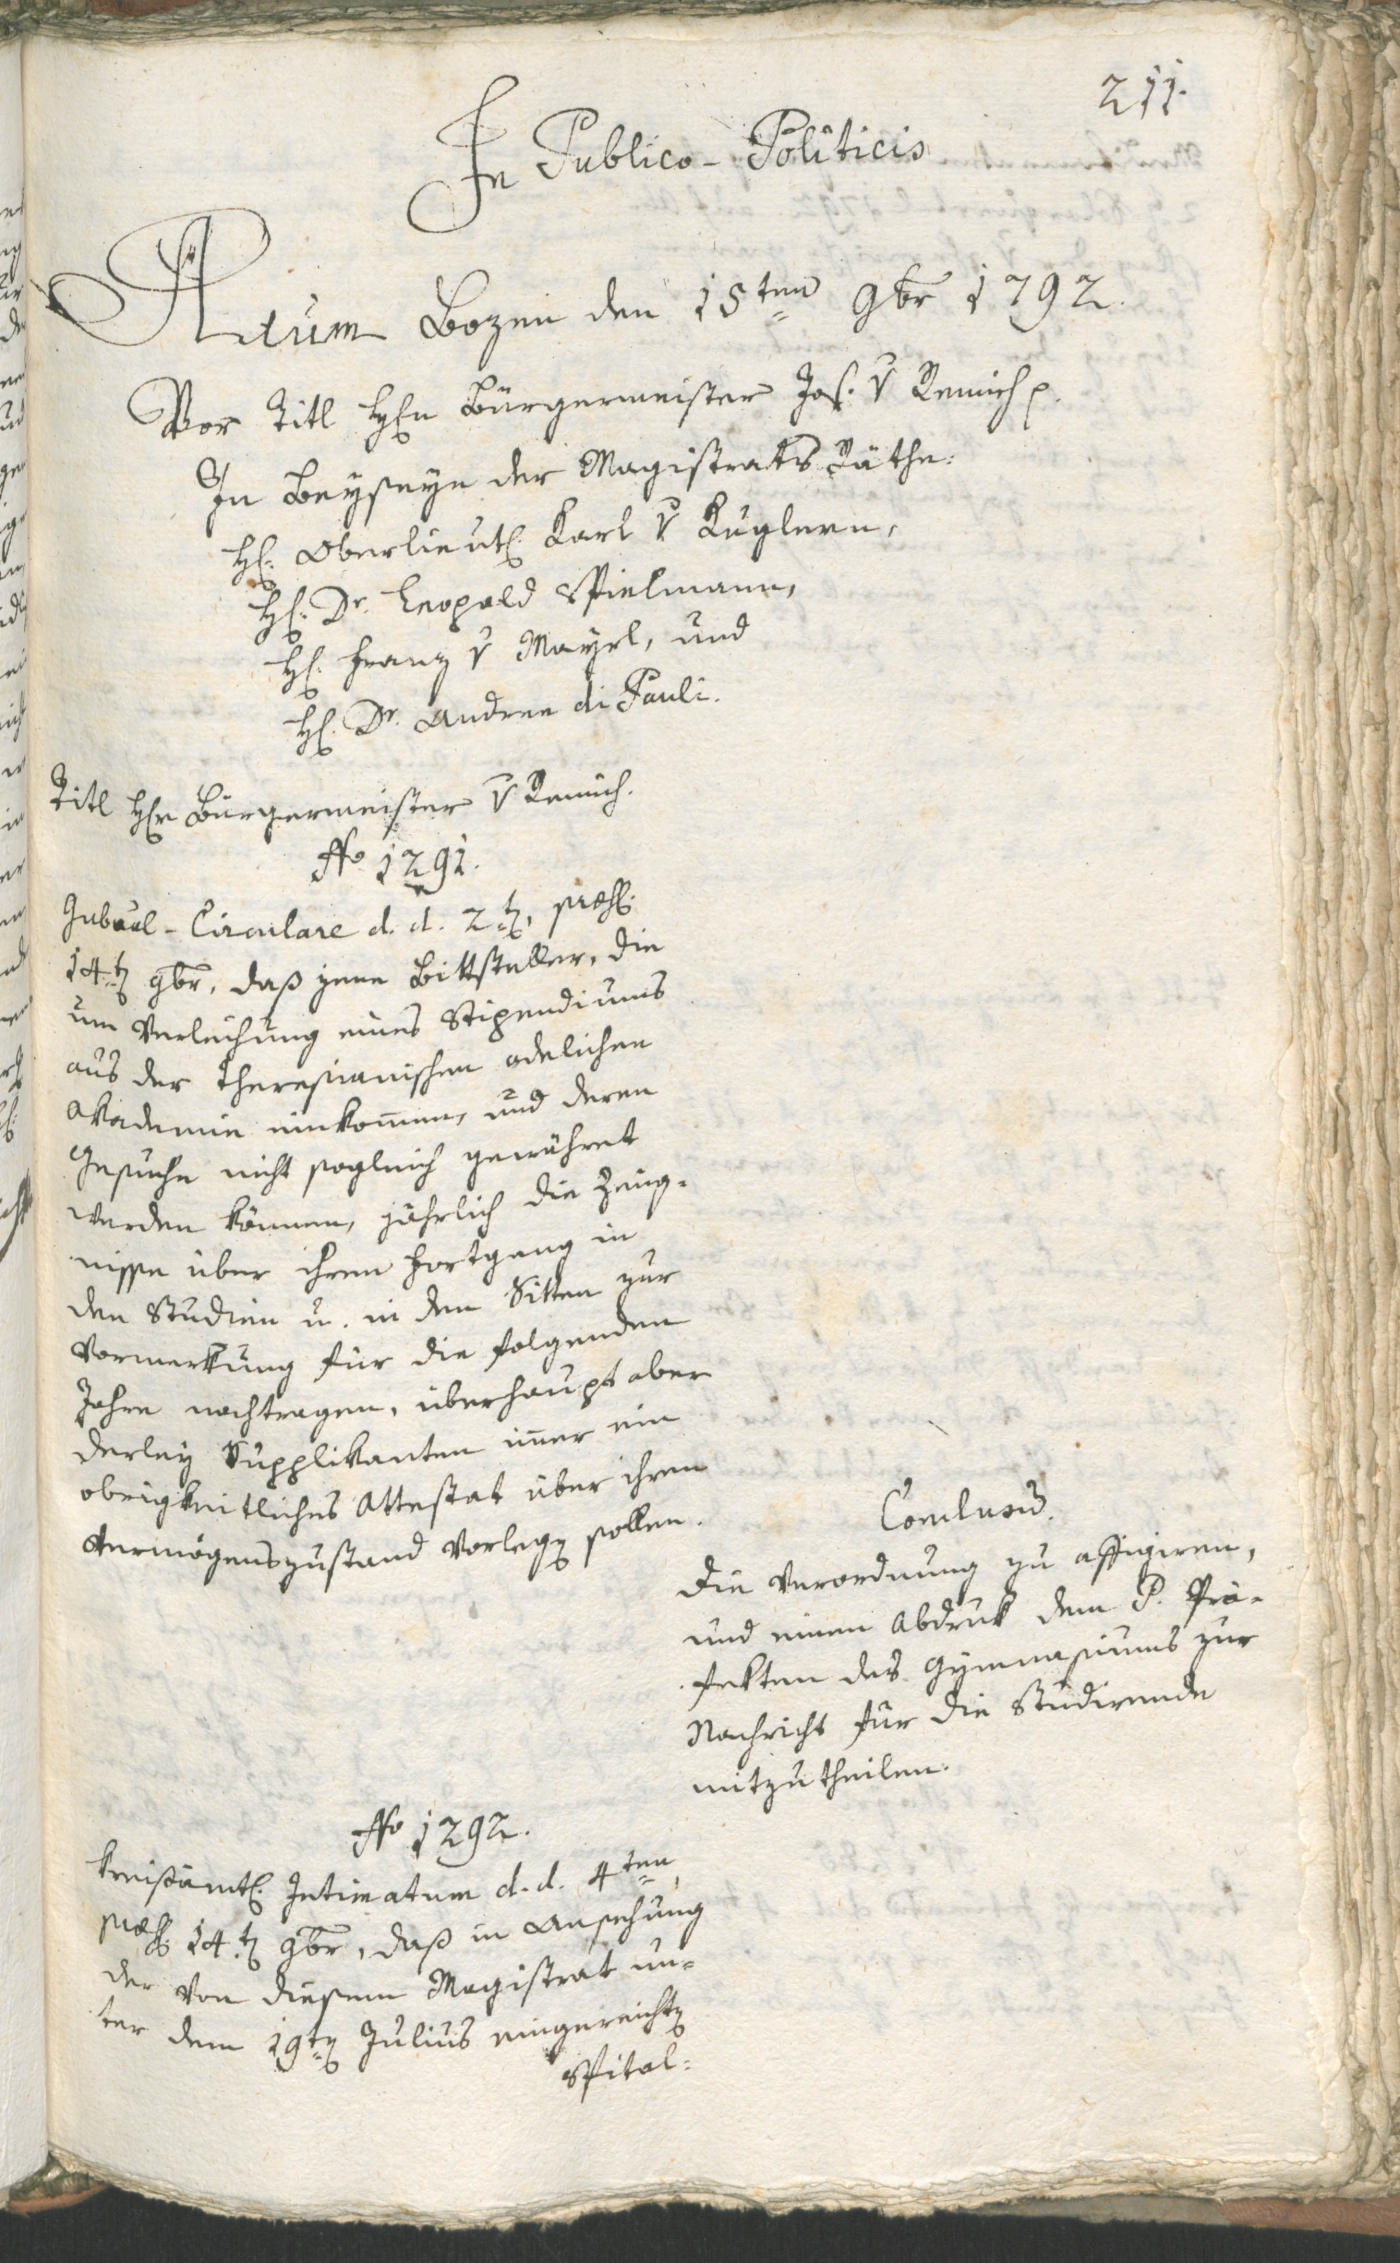 211.
In Publico-Politicis
Actum Bozen den 15ten 9br 1792.
Vor Titl Hℓn Bürgermeister Jos. v Remich p.
In Beyseyn der Magistrats Räthe:
H. Oberlieut. Karl v Kuglern,
H. Dr. Leopold Spielmann,
H. Franz v Mayrl, und
H. Dr. Andree di Pauli.
Titl Hr Bürgermeister v Remich.
No 1291.
Gubral-Circulare d. d. 2t, præs.
14t 9br, daß jene Bittsteller, die
um Verleihung eines Stipendiums
aus der Theresianischen adelichen
Akademie einkom̄en, und deren
Gesuche nicht sogleich gewähret
werden können, jährlich die Zeug-
nisse über ihren Fortgang in
den Studien u. in den Sitten zur
Vormerkung für die folgenden
Jahre nachtragen, überhaupt aber
derley Supplikanten im̄er ein
obrigkeitliches Attestat über ihren
Vermögenszustand vorlegen sollen.
Conclusum.
Die Verordnung zu affigiren,
und einen Abdruk dem P. Prä-
fekten des Gymnasiums zur
Nachricht für die Studirende
mitzutheilen.
No 1292.
Kreisämtl. Intimatum d. d. 4ten,
præs. 14t 9br, daß in Ansehung
der von diesem Magistrat un-
ter dem 19ten Julius eingereichten
Spital-